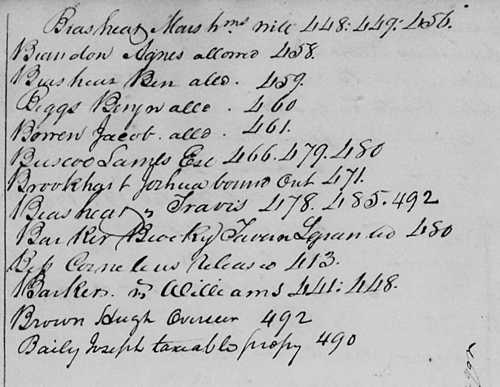 Beashear Marsh ms mill 448: 449: 456.
Brandon Agnes allowed 458.
Beashear Ben alld. 459.
Biggs Benjn alld. 460
Bowen Jacob. alld. 461.
Buscoe Saml Esc 466. 479. 480
Brookhart Joshua bound Out 471.
Beashear vs Travis 478. 485. 492
Barker Tavern L granted 480
Cornelius released 413.
Barker vs Williams 441: 448.
Brown Hugh Overseer 492
Baily Joseph taxable propy 490